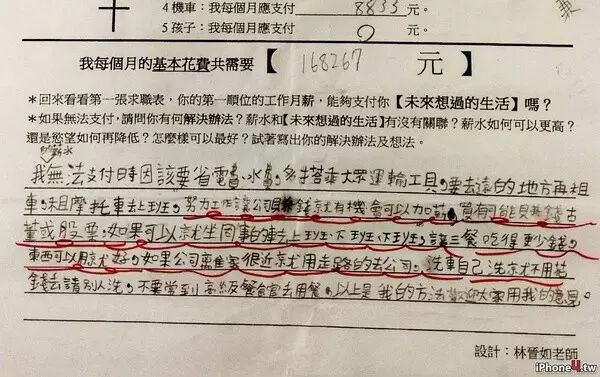 4 機車:我每個月應支付 8833 元。
5 孩子:我每個月應支付 0 元。
我每個月的基本花費共需要【 168267 元 】
*回來看看第一張求職表,你的第一順位的工作月薪,能夠支付你【未來想過的生活】嗎?
*如果無法支付,請問你有何解決辦法?薪水和【未來想過的生活】有沒有關聯?薪水如何可以更高?
還是慾望如何再降低?怎麼樣可以最好?試著寫出你的解決辦法及想法。
我無法支付時因該要省電費、水費。多搭乘大眾運輸工具。要去遠的地方再租
車。租摩托車去上班。努力工作讓公司 錢就有機會可以加薪。買有可能 錢古
董或股票。如果可以就坐同事的車去上班、下班。讓三餐吃得更少錢。
東西可以用就好。如果公司離家很近就用走路的去公司。洗車自己洗就不用花
錢去請別人洗。不要常到高級餐館去用餐。以上是我的方法歡迎大家用我的意見。
設計:林晉如老師
iPhone4.tw